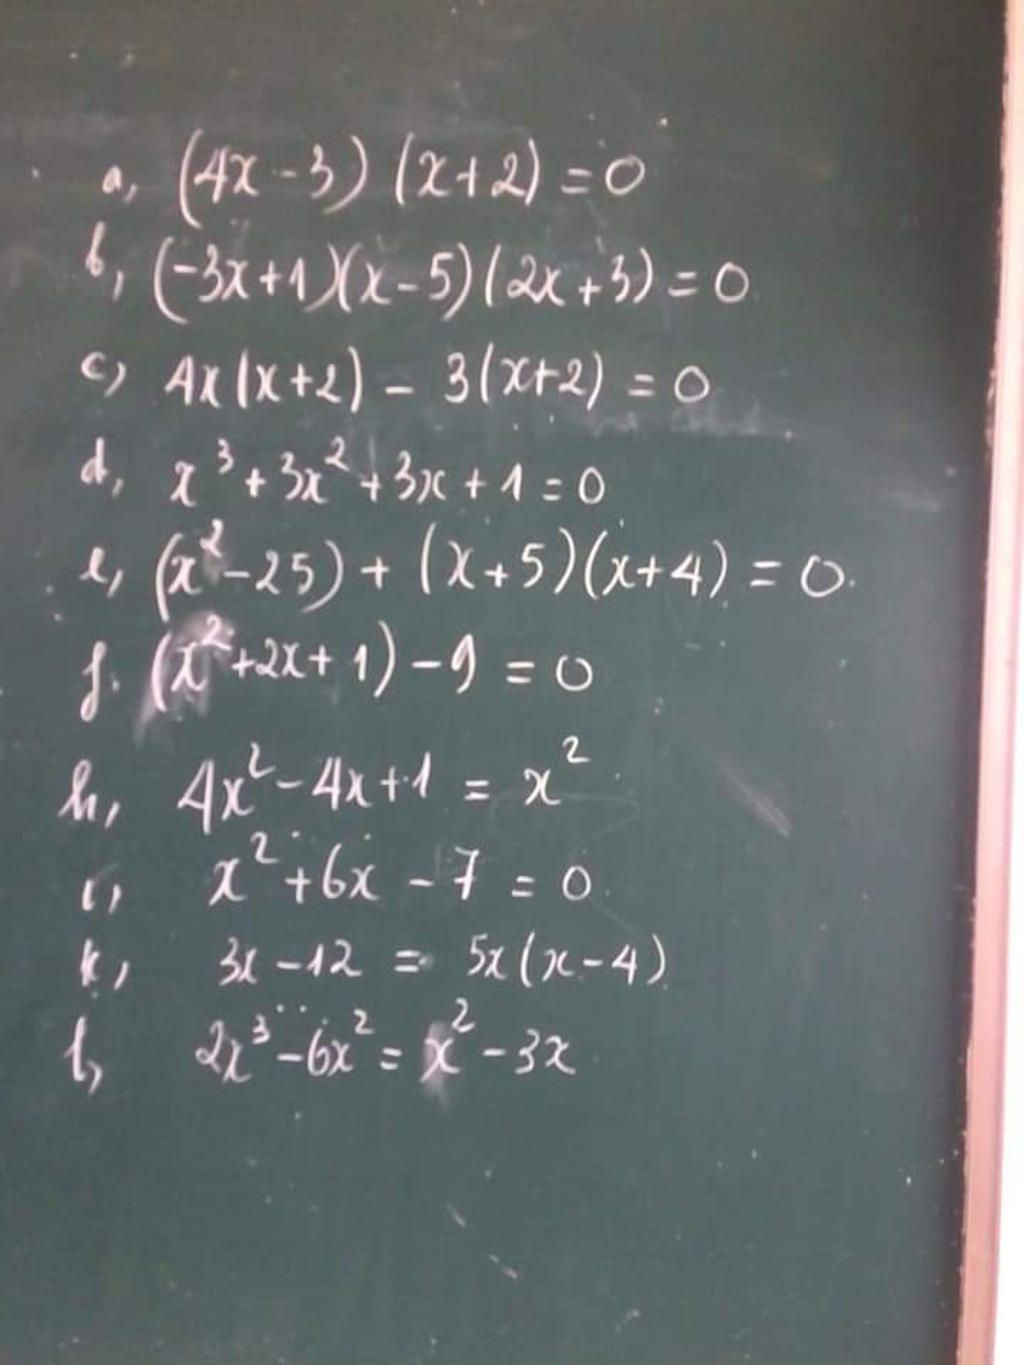 a, (4x - 3) (x + 2) = 0
b, (-3x + 1)(x - 5)(2x + 3) = 0
c, 4x(x + 2) - 3(x + 2) = 0
d, x³ + 3x² + 3x + 1 = 0
e, (x² - 25) + (x + 5)(x + 4) = 0.
f. (x² + 2x + 1) - 9 = 0
h, 4x² - 4x + 1 = x²
i, x² + 6x - 7 = 0
k, 3x - 12 = 5x(x - 4)
l, 2x³ - 6x² = x² - 3x